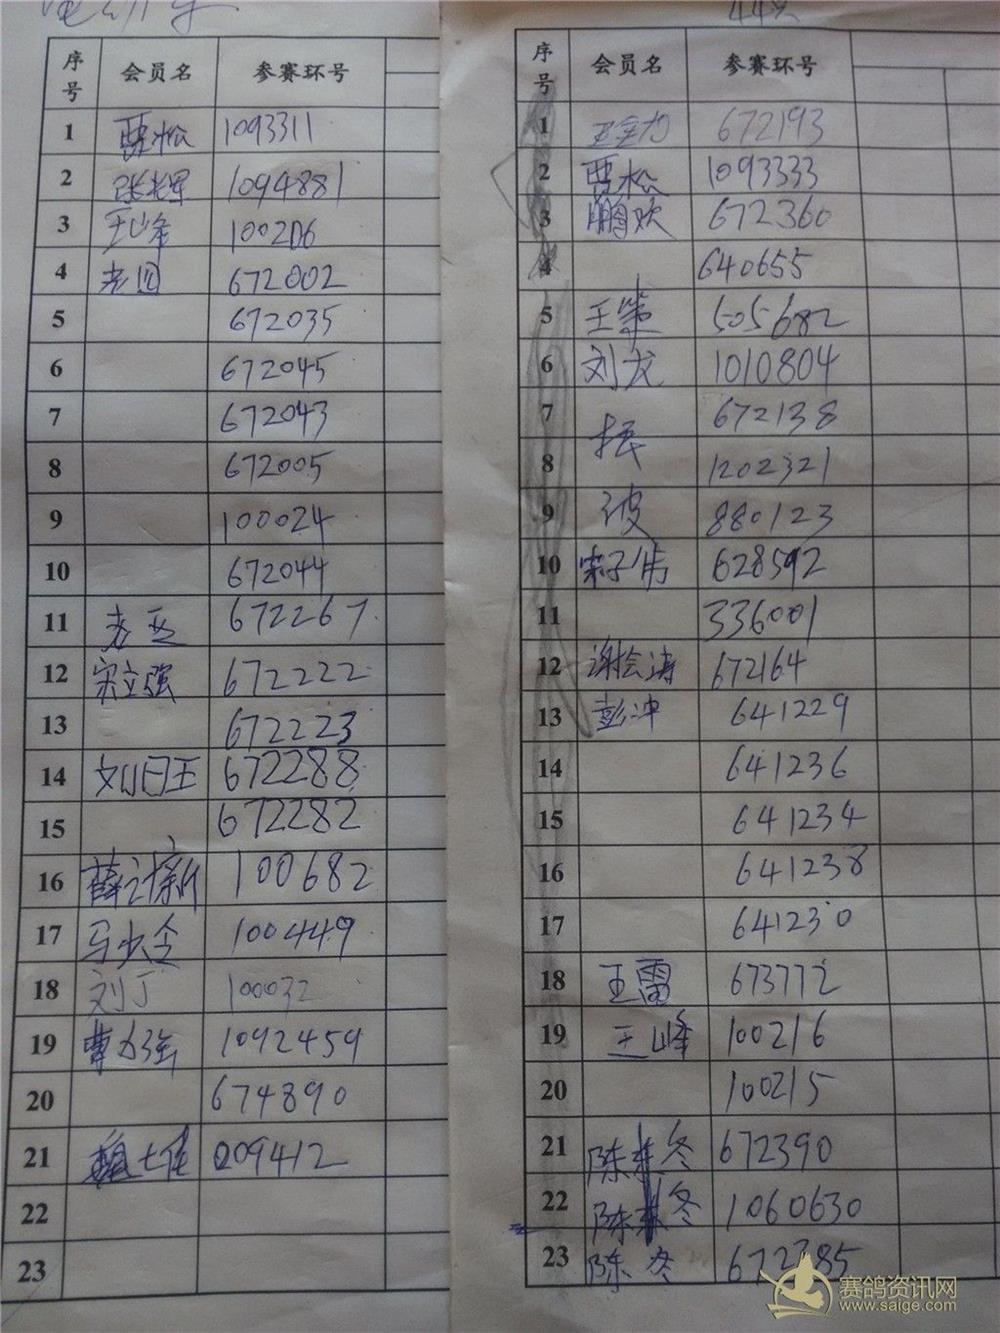 序号 会员名 参赛环号
1 贾松 1093311
2 张辉 1094881
3 王峰 100206
4 老四 672002
5 672035
6 672045
7 672043
8 672005
9 100024
10 672044
11 老五 672267
12 宋立强 672222
13 672223
14 刘日王 672288
15 672282
16 薛计新 100682
17 马少全 100449
18 刘丁 100032
19 曹力强 1092459
20 674890
21 209412
22
23
44只
序号 会员名 参赛环号
1 672193
2 贾松 1093333
3 鹏欢 672360
4 640655
5 王策 505682
6 刘龙 1010804
7 672138
振
8 1202321
9 波 880123
10 宋子伟 628592
11 336001
12 谢会涛 672164
13 彭冲 641229
14 641236
15 641234
16 641238
17 641230
18 王雷 673772
19 王峰 100216
20 100215
21 陈 冬 672390
22 陈 冬 1060630
23 陈 冬 672385
赛鸽资讯网
www.saige.com